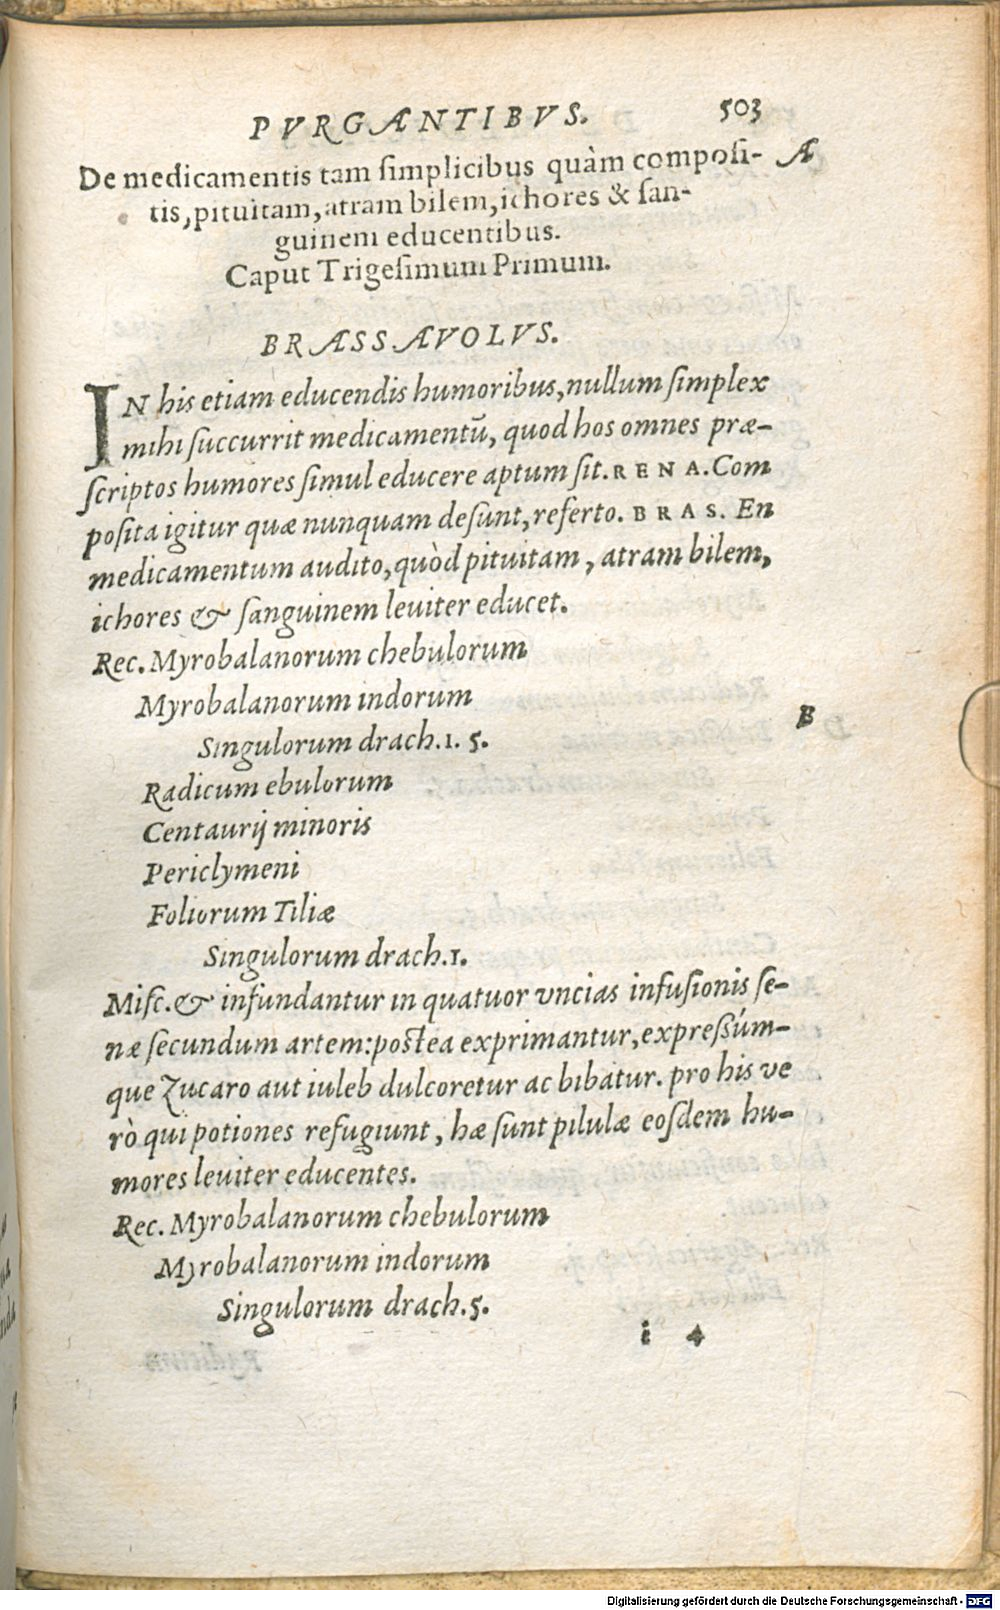 PVRGANTIBVS. 503
De medicamentis tam simplicibus quàm composi- A
tis, pituitam, atram bilem, ichores & san-
guinem educentibus.
Caput Trigesimum Primum.
BRASSAVOLVS.
IN his etiam educendis humoribus, nullum simplex
mihi succurrit medicamentũ, quod hos omnes præ-
scriptos humores simul educere aptum sit. RENA. Com
posita igitur quæ nunquam desunt, referto. BRAS. En
medicamentum audito, quòd pituitam, atram bilem,
ichores & sanguinem leuiter educet.
Rec. Myrobalanorum chebulorum
Myrobalanorum indorum
B
Singulorum drach. 1. 5.
Radicum ebulorum
Centaurij minoris
Periclymeni
Foliorum Tiliæ
Singulorum drach. 1.
Misc. & infundantur in quatuor vncias infusionis se-
næ secundum artem: postea exprimantur, expressúm-
que Zucaro aut iuleb dulcoretur ac bibatur. pro his ve
rò qui potiones refugiunt, hæ sunt pilulæ eosdem hu-
mores leuiter educentes.
Rec. Myrobalanorum chebulorum
Myrobalanorum indorum
Singulorum drach. 5.
i 4
Digitalisierung gefördert durch die Deutsche Forschungsgemeinschaft - DFG